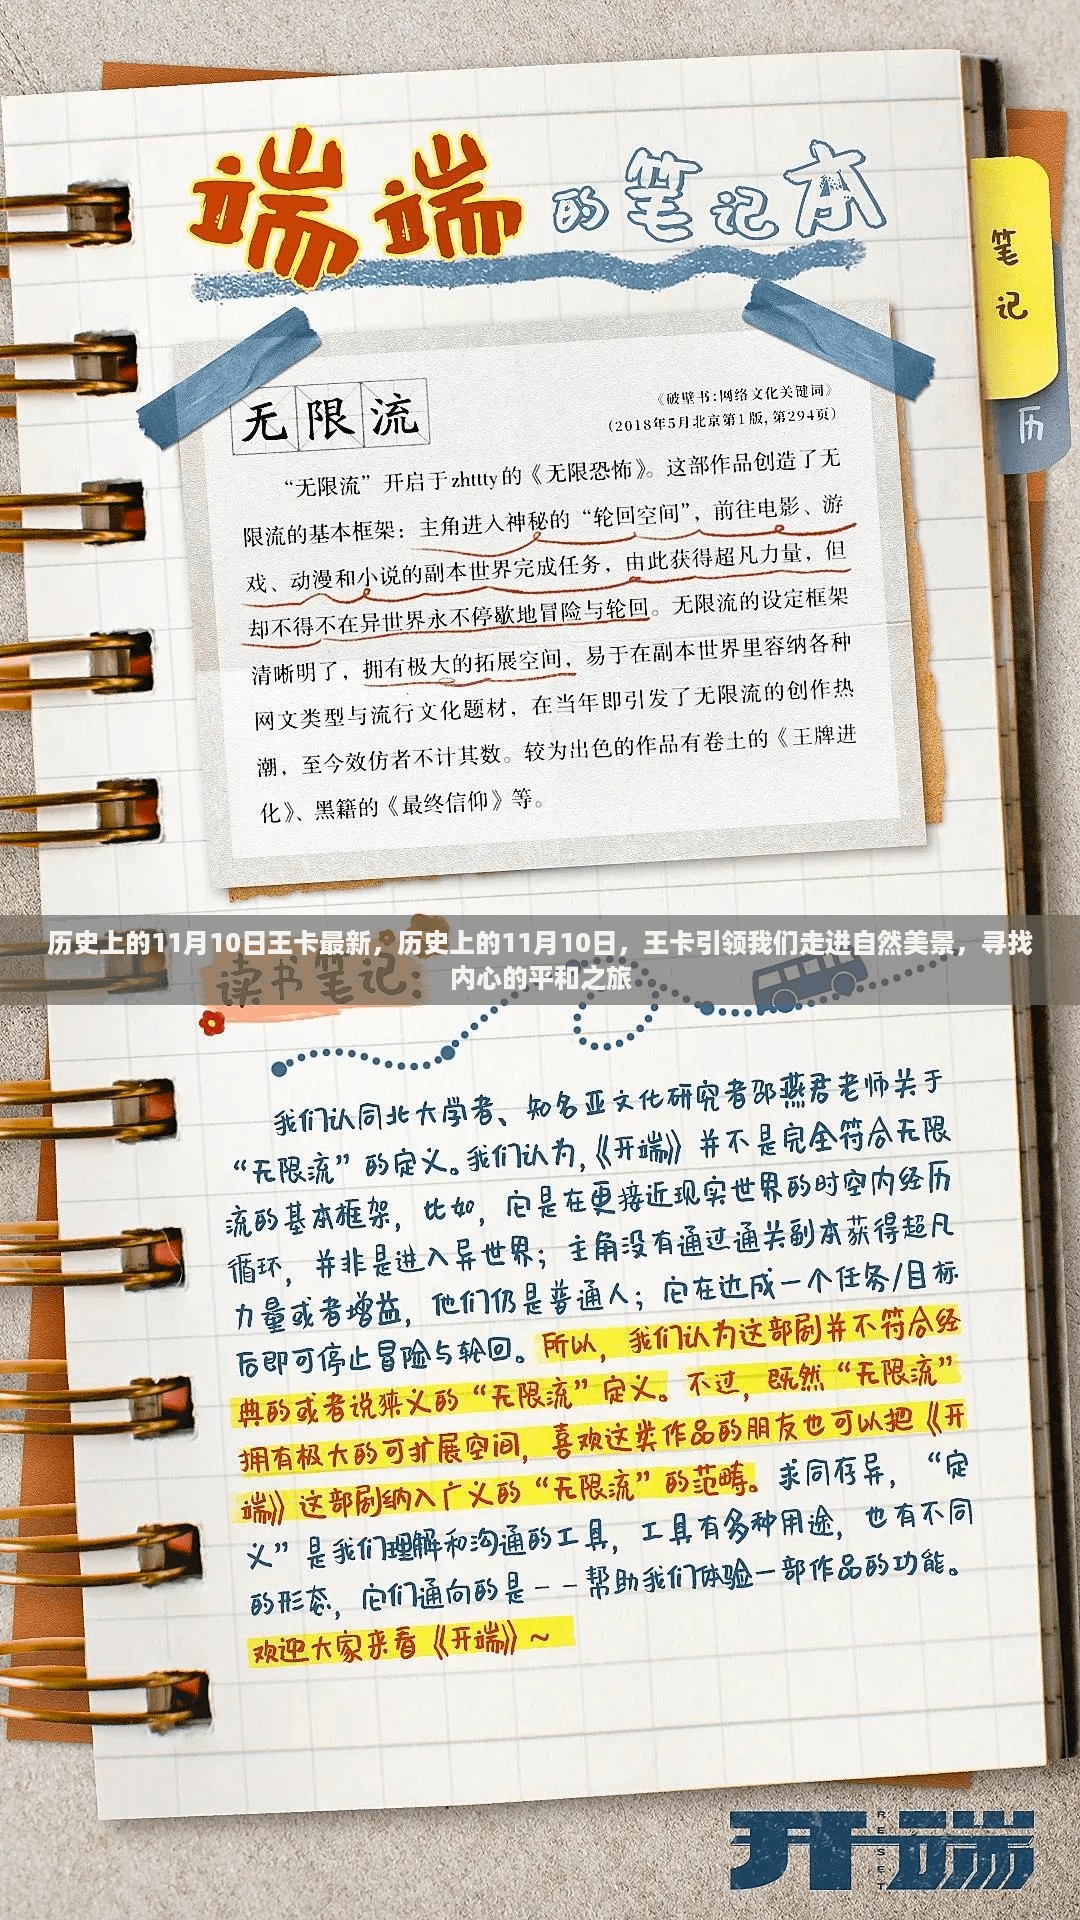 端端的笔记本
笔记
历
无限流
《破壁书:网络文化关键词》
(2018年5月北京第1版,第294页)
“无限流”开启于zhttty的《无限恐怖》。这部作品创造了无
限流的基本框架：主角进入神秘的“轮回空间”，前往电影、游
戏、动漫和小说的副本世界完成任务，由此获得超凡力量，但
却不得不在异世界永不停歇地冒险与轮回。无限流的设定框架
清晰明了，拥有极大的拓展空间，易于在副本世界里容纳各种
网文类型与流行文化题材，在当年即引发了无限流的创作热
潮，至今效仿者不计其数。较为出色的作品有卷土的《王牌进
化》、黑籍的《最终信仰》等。
历史上的11月10日王卡最新，历史上的11月10日，王卡引领我们走进自然美景，寻找
内心的平和之旅
读书笔记:
我们认同北大学者、知名亚文化研究者邵燕君老师关于
“无限流”的定义。我们认为，《开端》并不是完全符合无限
流的基本框架，比如，它是在更接近现实世界的时空内经历
循环，并非是进入异世界；主角没有通过通关副本获得超凡
力量或者增益，他们仍是普通人；它在达成一个任务/目标
后即可停止冒险与轮回。所以，我们认为这部剧并不符合经
典的或者说狭义的“无限流”定义。不过，既然“无限流”
拥有极大的可扩展空间，喜欢这类作品的朋友也可以把《开
端》这部剧纳入广义的“无限流”的范畴。求同存异，“定
义”是我们理解和沟通的工具，工具有多种用途，也有不同
的形态，它们通向的是--帮助我们体验一部作品的功能。
欢迎大家来看《开端》~
开端
RESET